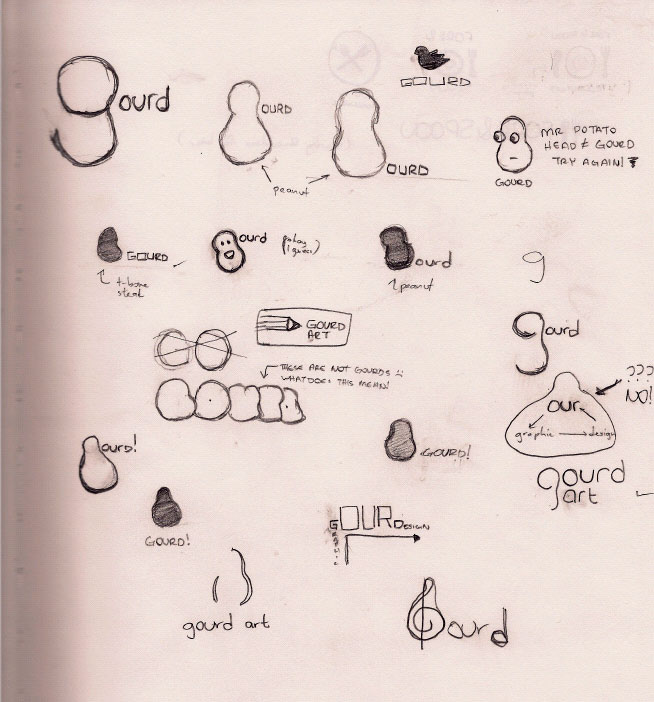 GOURD
gourd
OURD
OURD
peanut
MR POTATO
HEAD ≠ GOURD
TRY AGAIN!
GOURD
GOURD
t-bone
steak
ourd
ourd
peanut
g
GOURD
ART
gourd
THESE ARE NOT GOURDS
WHAT DOES THIS MEAN!
???
NO!
our
graphic → design
ourd!
GOURD!
gourd
art
GOURD!
GOURDESIGN
gourd art
ourd